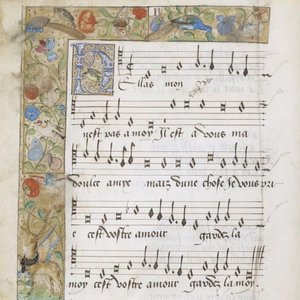 ellas mon
nest pas a moy Il est a vous ma
doulce amye maiz dune chose se vous pri
e cest vostre amour gardez la
moy cest vostre amour gardez la moy.